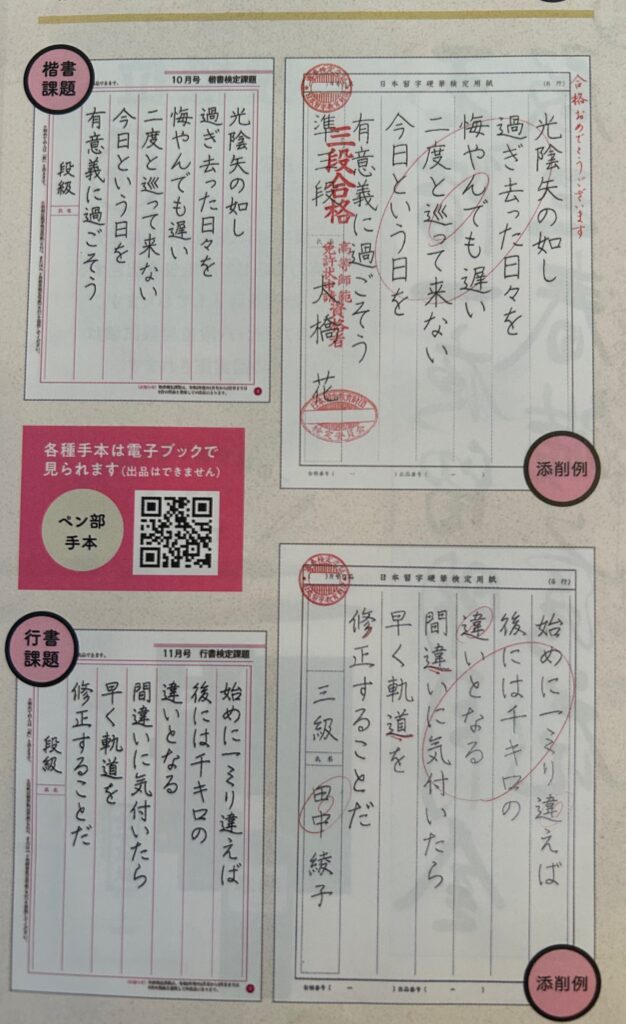 楷書
課題
10月号 楷書検定課題
光陰矢の如し
過ぎ去った日々を
悔やんでも遅い
二度と巡って来ない
今日という日を
有意義に過ごそう
段級
氏名
日本習字硬筆検定用紙
(6行)
合格おめでとうございます
光陰矢の如し
過ぎ去った日々を
悔やんでも遅い
二度と巡って来ない
今日という日を
有意義に過ごそう
三段合格
準三段 大橋 花
高等師範資格者
添削例
各種手本は電子ブックで
見られます(出品はできません)
ペン部
手本
行書
課題
11月号 行書検定課題
始めに一ミリ違えば
後には千キロの
違いとなる
間違いに気付いたら
早く軌道を
修正することだ
段級
氏名
日本習字硬筆検定用紙
(6行)
始めに一ミリ違えば
後には千キロの
違いとなる
間違いに気付いたら
早く軌道を
修正することだ
三級
氏名
田中 綾子
添削例